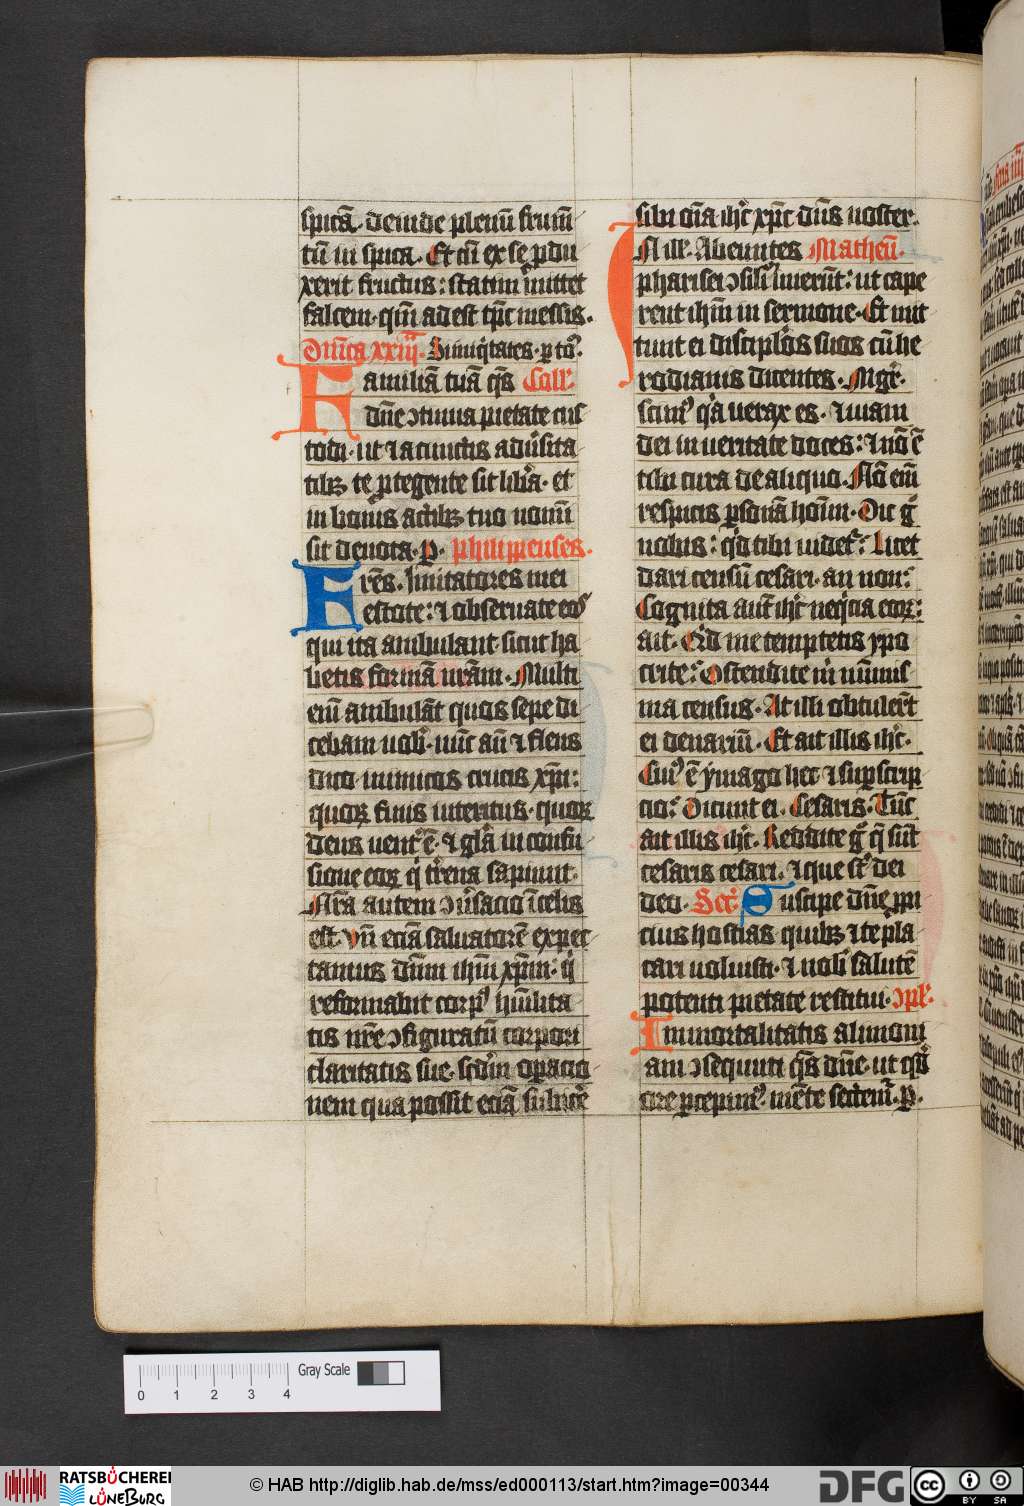 spicā. deinde plenū frumē
tū in spica. Et cū ex se ꝓdu
xerit fructus: statim mittet
falcem. qm̄ adest tp̄c messis.
Dn̄ica xxiij. Si iniq̇tates. ꝑ tō.
Familiā tuā q̄s Coll'.
dn̄e ↄtinua pietate cus
todi. ut ⁊ a cunctis aduersita
tibꝫ te ꝓtegente sit libͣa. et
in bonis actibꝫ tuo nomī
sit deuota. ꝑ. Philippenses.
Fr̄es. Imitatores mei
estote: ⁊ obseruate eos
qui ita ambulant. sicut ha
betis formā nr̄am. Multi
eīn ambulāt quos sepe di
cebam uob̄. nūc aū ⁊ flens
dico inimicos crucis xp̄i:
quoꝝ finis interitus. quoꝝ
deus uent̾ ē. ⁊ glͣa in confu
sione eoꝝ q̇ tͬrena sapiunt.
Nr̄a autem ↄu̾sacio ī celis
est. Vn̄ eciā saluatorē expec
tamus dn̄m ihm̄ xp̄m. q̇
reformabit corpꝰ humīlita
tis nr̄e ↄfiguratū corpori
claritatis sue. scd̄m oꝑacio
nem qua possit eciā subicͤe
sibi oīa ihc̄ xp̄c dn̄s noster.
In ill'. Abeuntes Matheū.
pharisei ↄsiliū inierūt: ut cape
rent ihm̄ in sermone. Et mit
tunt ei discipͦlos suos cū he
rodianis dicentes. Mgͬ.
scimꝰ qͥa uerax es. ⁊ uiam
dei in ueritate doces: ⁊ nō ē
tibi cura de aliquo. Nō eīn
respicis ꝑsonā hoīm. Dic gͦ
nobis: qͥd tibi uidet̾. Licet
dari censū cesari. an non:
Cognita aut̄ ihc̄ neq̇cia eoꝝ:
ait. Qͥd me temptetis ypo
crite: Ostendite mͥ numis
ma census. At illi obtulert̄
ei denariū. Et ait illis ihc̄.
Cuiꝰ ē ymago hec ⁊ suꝑscrip
cio: Dicunt ei. Cesaris. Tūc
ait illis ihc̄. Reddite gͦ q̄ sūt
cesaris cesari. ⁊ que st̄ dei
deo. Secͬ. Suscipe dn̄e ꝓpi
cius hostias quibꝫ ⁊ te pla
cari uoluisti. ⁊ nob̄ salutē
potenti pietate restitui. ↄpl'.
Immortalitatis alimoni
am ↄsequuti q̄s dn̄e. ut qd̄
ore ꝑcepimꝰ. mēte sectemͬ. ꝑ.
Gray Scale
0 1 2 3 4
RATSBÜCHEREI
LÜNEBURG
© HAB http://diglib.hab.de/mss/ed000113/start.htm?image=00344
DFG
cc BY SA